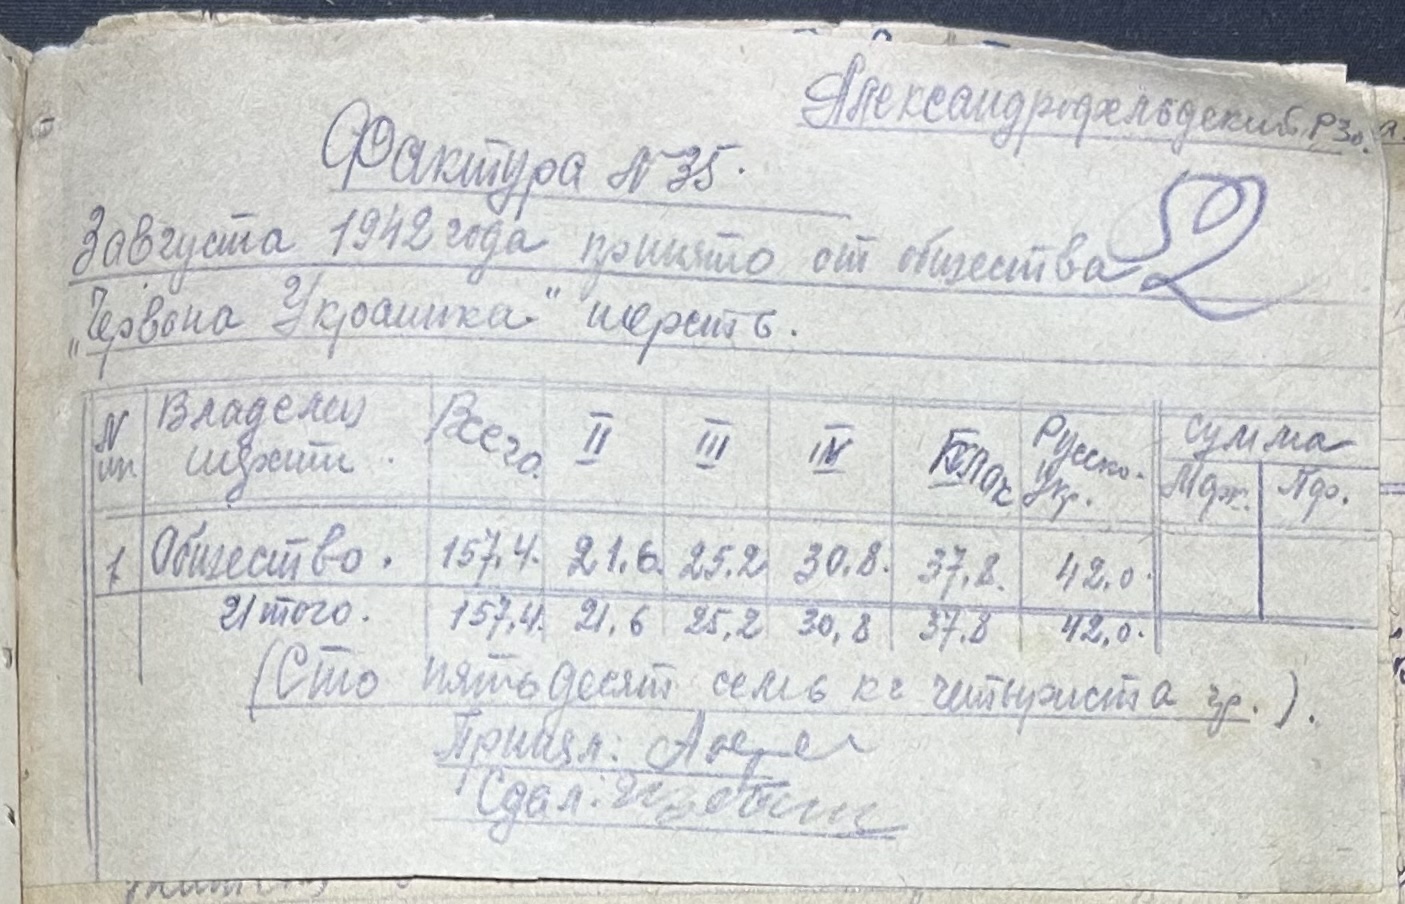 Александрофельдский РЗо.
Фактура N 35.
2
3 августа 1942 года принято от общества
„Червона Украинка" шерсть.
N пп. Владелец шерсти. Всего. II III IV клок Русско-Укр. Сумма
Мдж. Пдр.
1 Общество. 157,4. 21,6 25,2 30,8. 37,8. 42,0.
Итого. 157,4. 21,6 25,2 30,8 37,8 42,0.
(Сто пятьдесят семь кг четыриста гр.).
Принял:
Сдал: